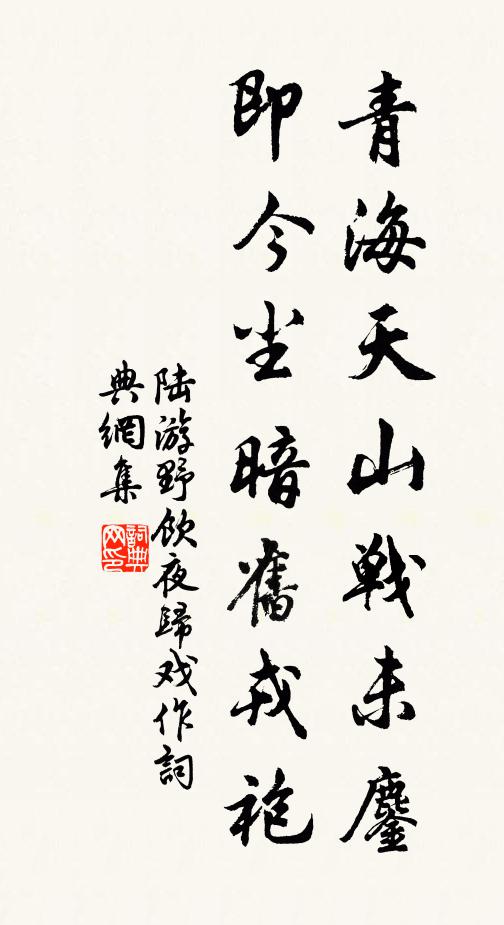 青海天山戰未鏖
即今尘暗舊戎袍
陆游野飲夜歸戏作詞
典網集
詞典网印